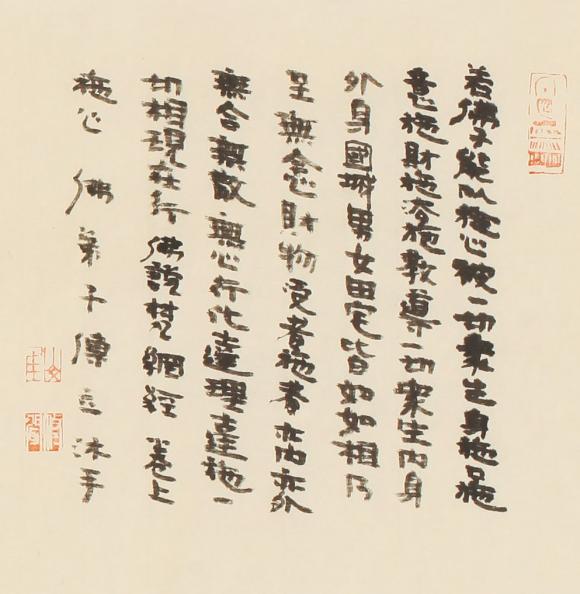 若佛子能以施心被一切眾生身施口施
意施財施法施教導一切眾生内身
外身國城男女田宅皆如如相乃
至無念財物受者施者亦内亦外
無合無散無心行化達理達施一
切相現在行 佛說梵網經 卷上
施心 佛弟子傅立沐手